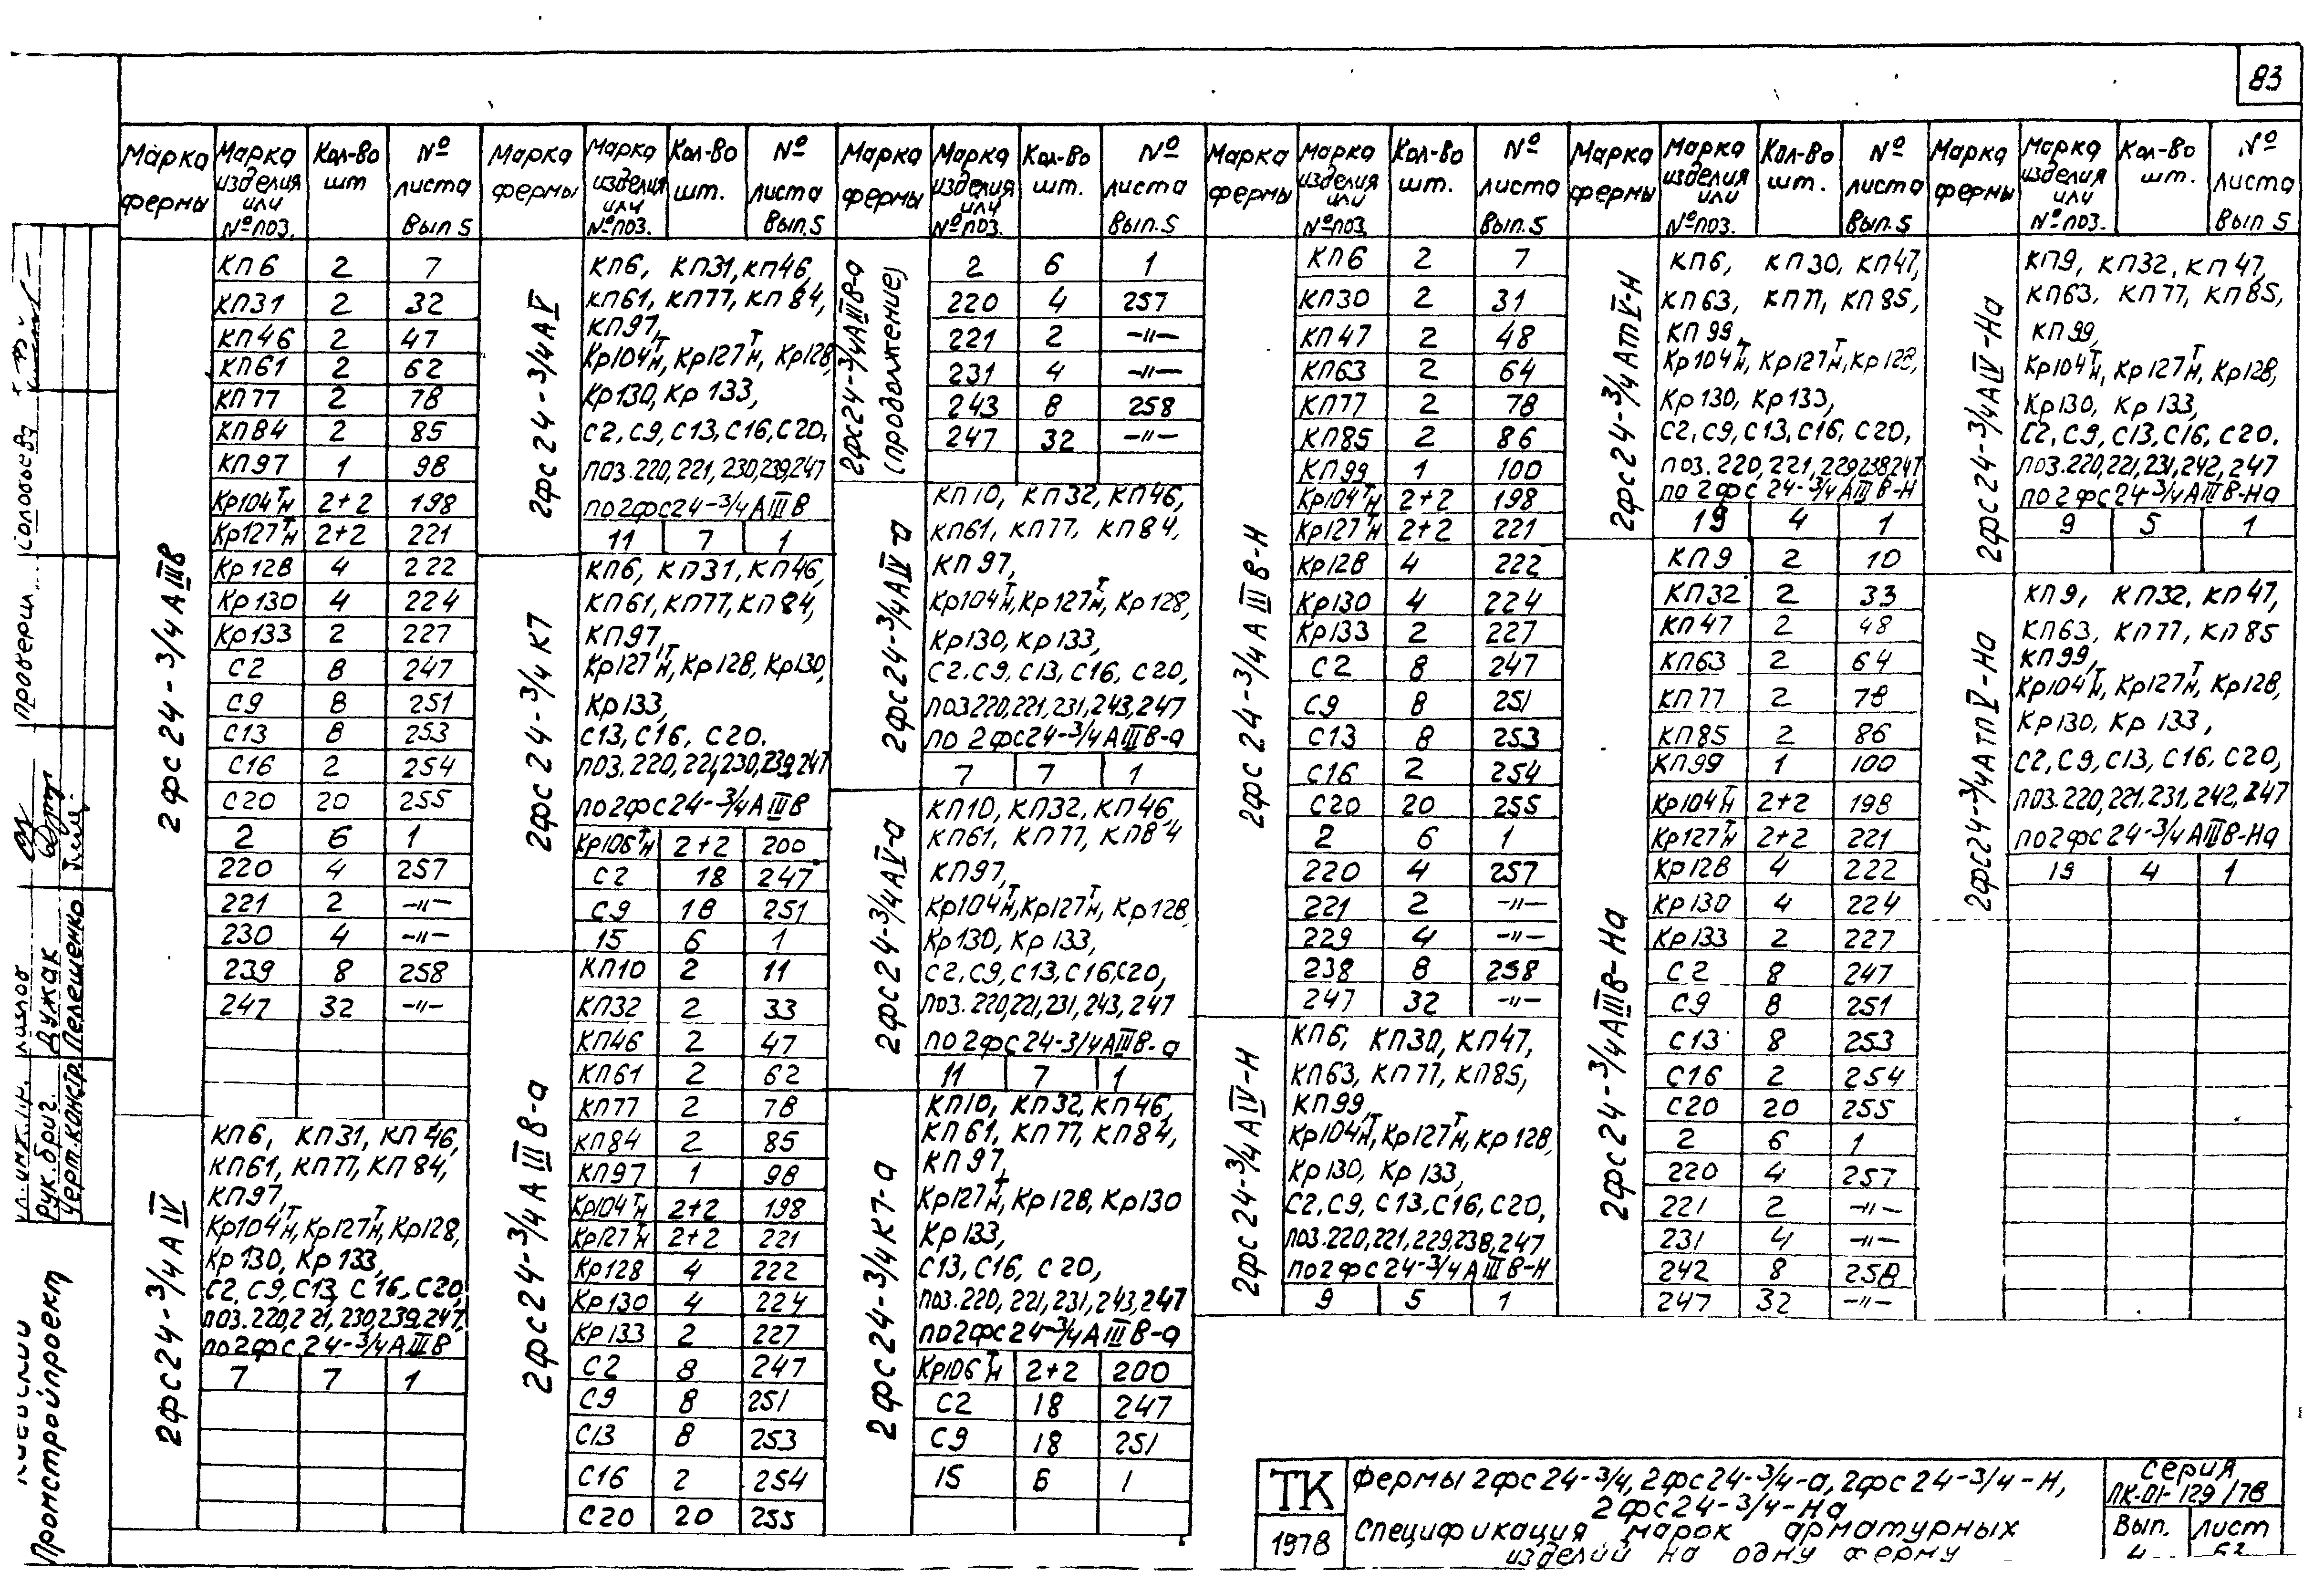 83
Марка фермы | Марка изделия или №поз. | Кол-во шт | № листа Вып 5
2фс24-3/4АIIIВ
КП6 2 7
КП31 2 32
КП46 2 47
КП61 2 62
КП77 2 78
КП84 2 85
КП97 1 98
Кр104т/н 2+2 198
Кр127т/н 2+2 221
Кр128 4 222
Кр130 4 224
Кр133 2 227
С2 8 247
С9 8 251
С13 8 253
С16 2 254
С20 20 255
2 6 1
220 4 257
221 2 -"-
230 4 -"-
239 8 258
247 32 -"-
2фс24-3/4АIV
КП6, КП31, КП46,
КП61, КП77, КП84,
КП97,
Кр104т/н, Кр127т/н, Кр128,
Кр130, Кр133,
С2, С9, С13, С16, С20,
поз.220,221,230,239,247,
по2фс24-3/4АIIIВ
7 7 1
Марка фермы | Марка изделия или №поз. | Кол-во шт. | № листа Вып.5
2фс24-3/4АV
КП6, КП31, КП46,
КП61, КП77, КП84,
КП97,
Кр104т/н, Кр127т/н, Кр128,
Кр130, Кр133,
С2, С9, С13, С16, С20,
поз.220,221,230,239,247
по2фс24-3/4АIIIВ
11 7 1
2фс24-3/4К7
КП6, КП31, КП46,
КП61, КП77, КП84,
КП97,
Кр127т/н, Кр128, Кр130,
Кр133,
С13, С16, С20.
поз.220,221,230,239,247
по2фс24-3/4АIIIВ
Кр106т/н 2+2 200
С2 18 247
С9 18 251
15 6 1
2фс24-3/4АIIIВ-а
КП10 2 11
КП32 2 33
КП46 2 47
КП61 2 62
КП77 2 78
КП84 2 85
КП97 1 98
Кр104т/н 2+2 198
Кр127т/н 2+2 221
Кр128 4 222
Кр130 4 224
Кр133 2 227
С2 8 247
С9 8 251
С13 8 253
С16 2 254
С20 20 255
Марка фермы | Марка изделия или №поз. | Кол-во шт. | № листа Вып.5
2фс24-3/4АIIIВ-а
(продолжение)
2 6 1
220 4 257
221 2 -"-
231 4 -"-
243 8 258
247 32 -"-
2фс24-3/4АIV-а
КП10, КП32, КП46,
КП61, КП77, КП84,
КП97,
Кр104т/н, Кр127т/н, Кр128,
Кр130, Кр133,
С2, С9, С13, С16, С20,
поз220,221,231,243,247
по 2фс24-3/4АIIIВ-а
7 7 1
2фс24-3/4АV-а
КП10, КП32, КП46
КП61, КП77, КП84
КП97,
Кр104т/н, Кр127т/н, Кр128
Кр130, Кр133,
С2, С9, С13, С16, С20,
поз.220,221,231,243,247
по2фс24-3/4АIIIВ-а
11 7 1
2фс24-3/4К7-а
КП10, КП32, КП46,
КП61, КП77, КП84,
КП97,
Кр127т/н, Кр128, Кр130
Кр133,
С13, С16, С20,
поз.220,221,231,243,247
по2фс24-3/4АIIIВ-а
Кр106т/н 2+2 200
С2 18 247
С9 18 251
15 6 1
Марка фермы | Марка изделия или №поз | Кол-во шт. | № листа Вып.5
2фс24-3/4АIIIВ-Н
КП6 2 7
КП30 2 31
КП47 2 48
КП63 2 64
КП77 2 78
КП85 2 86
КП99 1 100
Кр104т/н 2+2 198
Кр127т/н 2+2 221
Кр128 4 222
Кр130 4 224
Кр133 2 227
С2 8 247
С9 8 251
С13 8 253
С16 2 254
С20 20 255
2 6 1
220 4 257
221 2 -"-
229 4 -"-
238 8 258
247 32 -"-
2фс24-3/4АIV-Н
КП6, КП30, КП47,
КП63, КП77, КП85,
КП99,
Кр104т/н, Кр127т/н, Кр128,
Кр130, Кр133,
С2, С9, С13, С16, С20,
поз.220,221,229,238,247
по2фс24-3/4АIIIВ-Н
9 5 1
Марка фермы | Марка изделия или №поз. | Кол-во шт. | № листа Вып.5
2фс24-3/4АтпV-Н
КП6, КП30, КП47,
КП63, КП77, КП85,
КП99,
Кр104т/н, Кр127т/н, Кр128,
Кр130, Кр133,
С2, С9, С13, С16, С20,
поз.220,221,229,238,247
по2фс24-3/4АIIIВ-Н
19 4 1
2фс24-3/4АIIIВ-На
КП9 2 10
КП32 2 33
КП47 2 48
КП63 2 64
КП77 2 78
КП85 2 86
КП99 1 100
Кр104т/н 2+2 198
Кр127т/н 2+2 221
Кр128 4 222
Кр130 4 224
Кр133 2 227
С2 8 247
С9 8 251
С13 8 253
С16 2 254
С20 20 255
2 6 1
220 4 257
221 2 -"-
231 4 -"-
242 8 258
247 32 -"-
Марка фермы | Марка изделия или №поз. | Кол-во шт. | № листа Вып 5
2фс24-3/4АIV-На
КП9, КП32, КП47,
КП63, КП77, КП85,
КП99,
Кр104т/н, Кр127т/н, Кр128,
Кр130, Кр133,
С2, С9, С13, С16, С20.
поз.220,221,231,242,247
по2фс24-3/4АIIIВ-На
9 5 1
2фс24-3/4АтпV-На
КП9, КП32, КП47,
КП63, КП77, КП85
КП99,
Кр104т/н, Кр127т/н, Кр128,
Кр130, Кр133,
С2, С9, С13, С16, С20,
поз.220,221,231,242,247
по2фс24-3/4АIIIВ-На
19 4 1
Проверил Соловьева
Рук.бриг. Дужак
Черт.констр. Пелешенко
Промстройпроект
ТК
1978
Фермы 2фс24-3/4, 2фс24-3/4-а, 2фс24-3/4-Н,
2фс24-3/4-На
Спецификация марок арматурных
изделий на одну ферму
Серия
ПК-01-129/78
Вып. Лист
4 62